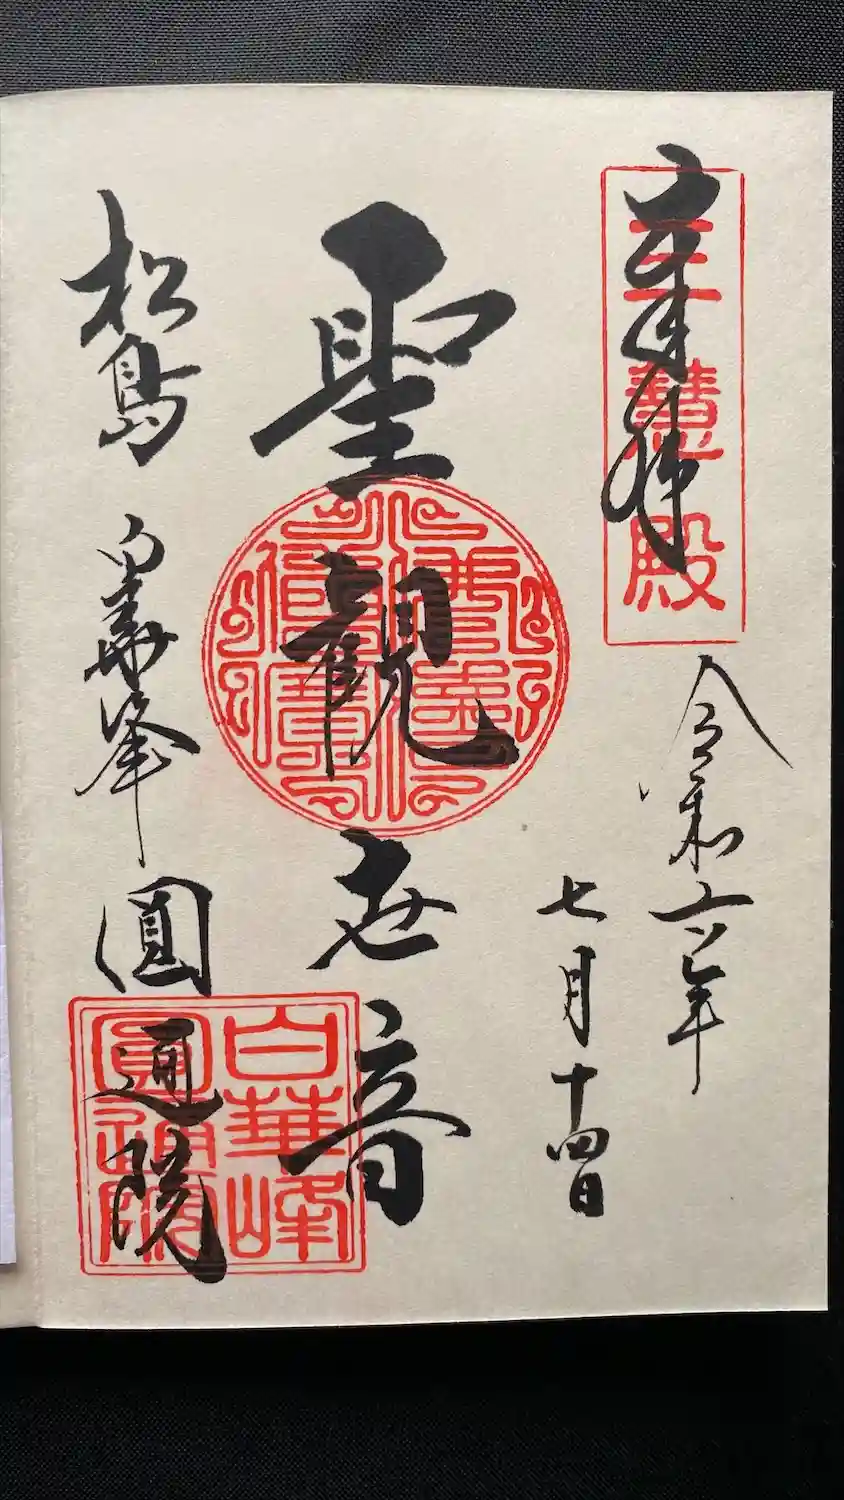 奉拝
三慧殿
令和六年
七月十四日
聖観世音
松島
白華峰
圓通院
白華峰
圓通院